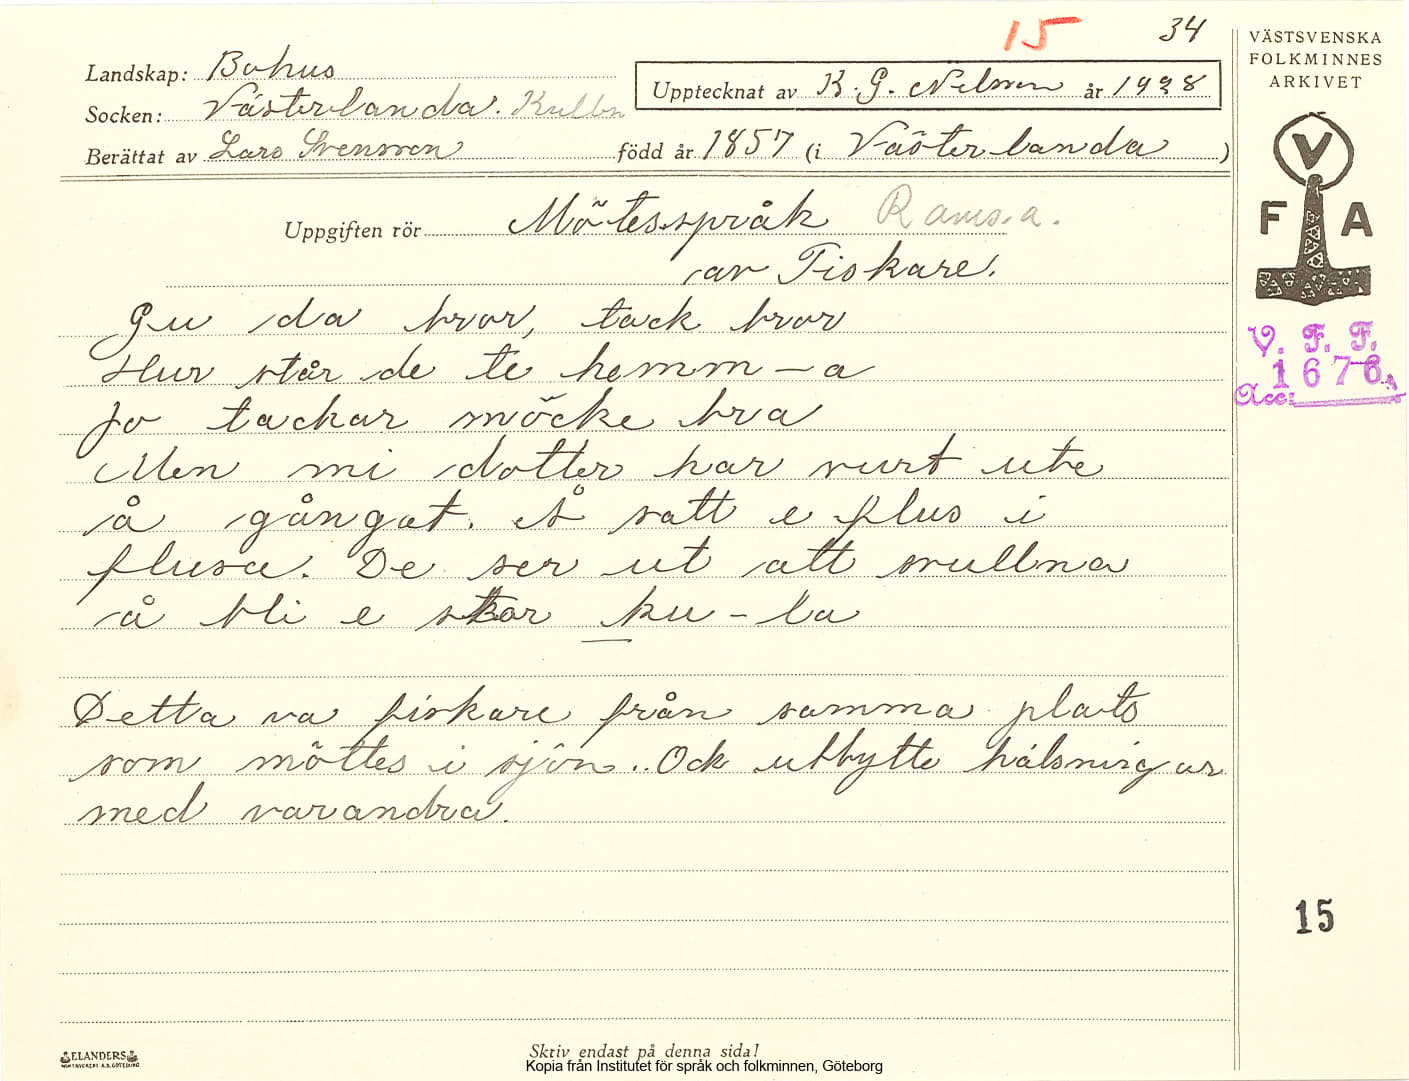 15 34
VÄSTSVENSKA
FOLKMINNES
ARKIVET
Landskap: Bohus
Socken: Västerlanda.
Upptecknat av K. G. Nilsson år 1928
Berättat av Lars Svensson född år 1857 (i Västerlanda)
V
F A
Uppgiften rör Mötesspråk Ramsa.
av Fiskare.
Gu da bror, tack bror
Hur står de te hemm-a
Jo tackar möcke bra
Men mi dotter har vurt ute
å gångat. Å satt e flus i
flusa. De ser ut att svullna
å bli e stor ku-la
Detta va fiskare från samma plats
som möttes i sjön. Ock utbytte hälsningar
med varandra.
V. F. F.
Acc: 1676
15
ELANDERS
Skriv endast på denna sida!
Kopia från Institutet för språk och folkminnen, Göteborg